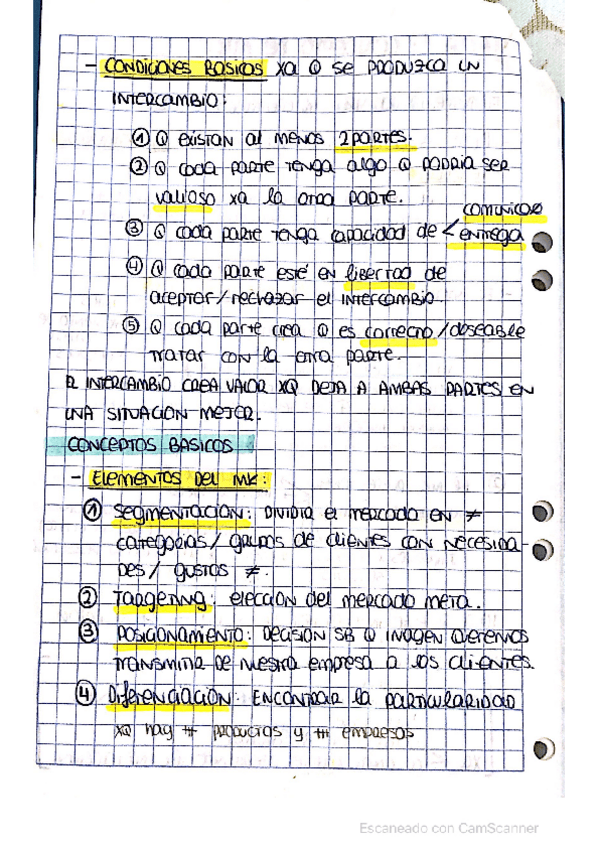 - CONDICIONES BASICAS xa Q SE PRODUZCA UN
INTERCAMBIO:
① Q EXISTAN al MENOS 2 PARTES.
② Q cada PARTE TENGA algo Q PODRIA SER
valioso xa la otra PARTE.
comunicar
③ Q cada PARTE TENGA capacidad de < entrega
④ Q cada parte esté en libertad de
aceptar/rechazar el intercambio.
⑤ Q cada parte crea Q es correcto/deseable
tratar con la otra parte.
EL INTERCAMBIO CREA VALOR XQ DEJA A AMBAS PARTES EN
UNA SITUACION MEJOR.
CONCEPTOS BASICOS
- Elementos Del MK:
① Segmentacion: DIVIDIR el mercado en ≠
categorias/grupos de clientes con necesida-
des/gustos ≠.
② Targeting: eleccion del mercado meta.
③ Posicionamento: Decision SB Q imagen queremos
transmitir de nuestra empresa a los clientes.
④ Diferenciacion: ENCONTRAR la particularidad
XQ hay ## productos y ## empresas
Escaneado con CamScanner